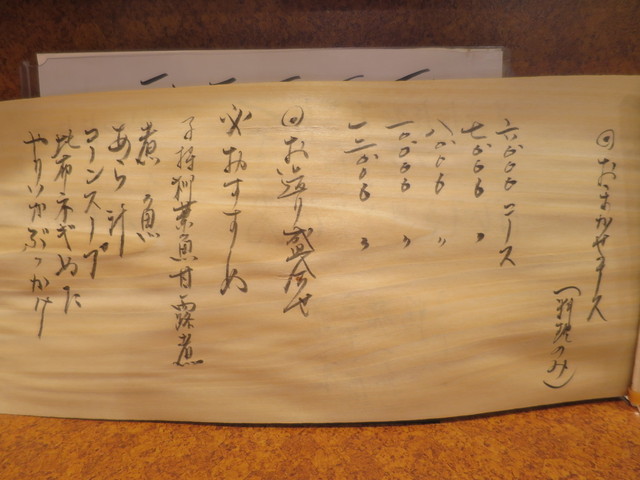 おまかせコース
(料理のみ)
六〇〇〇 コース
七〇〇〇 〃
八〇〇〇 〃
一〇〇〇〇 〃
一二〇〇〇 〃
お造り盛合せ
必 おすすめ
子持柳葉魚甘露煮
煮魚
あら汁
コーンスープ
昆布ネギぬた
やりいかぶっかけ